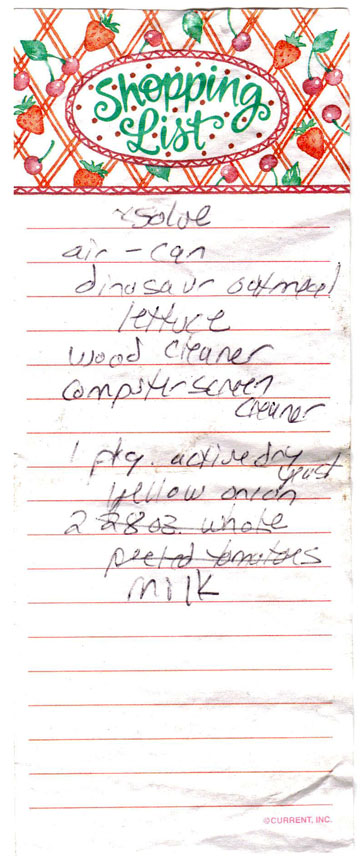 Shopping
List
rsolve
air - can
dinosaur oatmeal
lettuce
wood cleaner
computer screen
cleaner
1 pkg. active dry
yeast
yellow onion
2 28oz. whole
peeled tomatoes
milk
©CURRENT, INC.